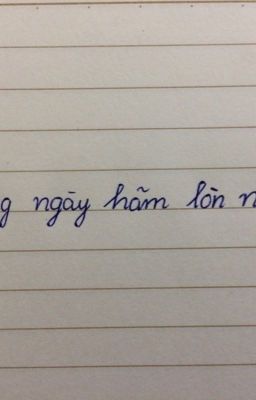 g ngày hãm lòn n